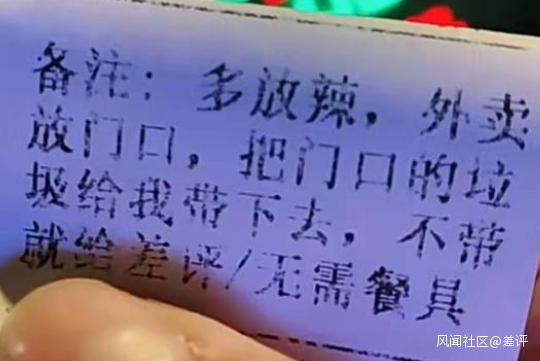 备注：多放辣，外卖
放门口，把门口的垃
圾给我带下去，不带
就给差评/无需餐具
风闻社区@差评